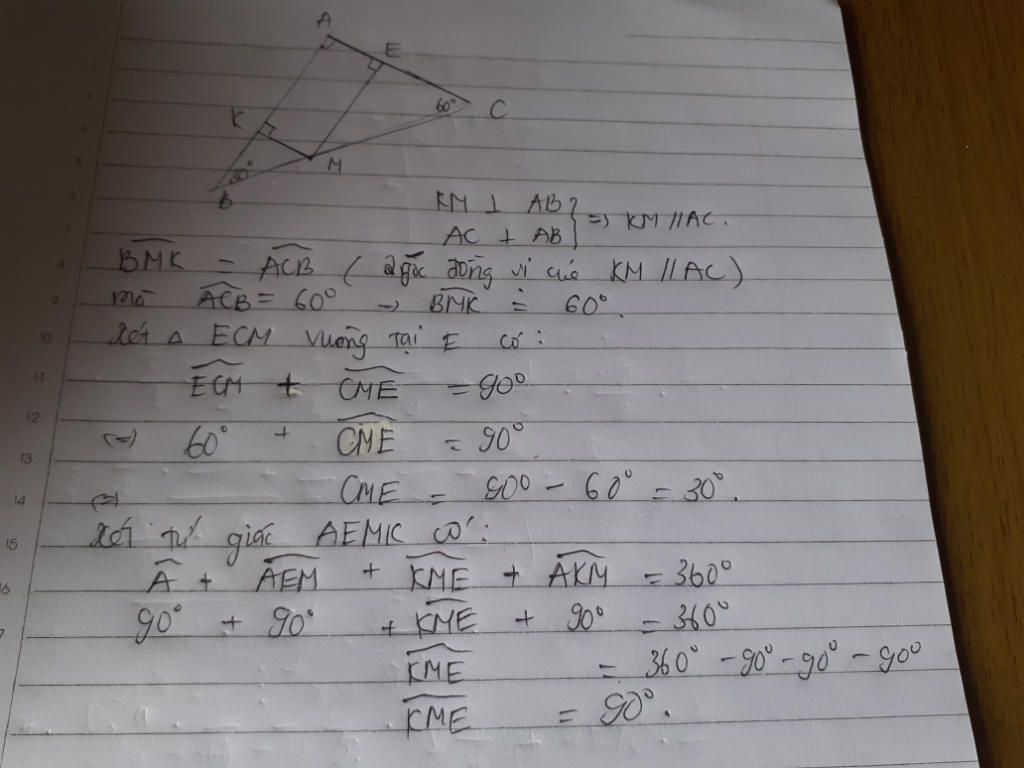 A
E
60°
C
K
30°
M
B
KM ⊥ AB
AC ⊥ AB } => KM // AC.
BMK = ACB ( 2 góc đồng vị của KM // AC )
mà ACB = 60° → BMK = 60°.
Xét △ ECM vuông tại E có :
ECM + CME = 90°
(=) 60° + CME = 90°
(=) CME = 90° - 60° = 30°.
Xét tứ giác AEMK có :
A + AEM + KME + AKM = 360°
90° + 90° + KME + 90° = 360°
KME = 360° - 90° - 90° - 90°
KME = 90°.
10
11
12
13
14
15
16